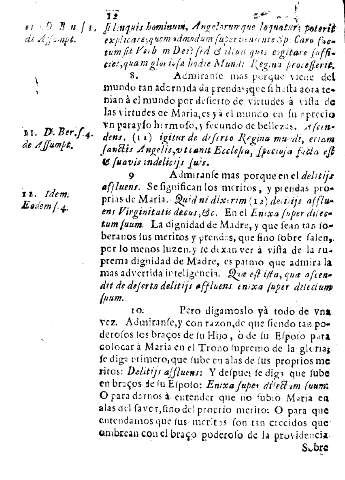 12
si linquis hominum, Angelorumque loquatur, poterit
explicare, quemadmodum superveniente Sp. Caro fac-
cies; quam gloriosa hodie Mundi Regina processerit.
8. Admiranse mas porque viene del
mundo tan adornada de prendas; que si hasta aora te-
nian à el mundo por desierto de virtudes à vista de
las virtudes de Maria, es yà el mundo en su aprecio
vn parayso hermoso, y fecundo de bellezas. Ascen-
dens, (11) igitur de deserto Regina mundi, etiam
sanctis Angelis, vt canit Ecclesia, speciosa facta est
& suavis indelicijs suis.
9 Admiranse mas porque en el delitijs
affluens. Se significan los meritos, y prendas pro-
prias de Maria. Quid ni dixerim (12) delitijs afflu-
ens Virginitatis decus, &c. En el Enixa super dilec-
tum suum. La dignidad de Madre, y que sean tan so-
beranos sus meritos y prendas, que sino sobre salen,
per lo menos luzen, y se dexan ver à vista de la su-
prema dignidad de Madre, es pasmo que admira la
mas advertida inteligencia. Quæ est ista, quæ ascen-
dit de deserto delitijs affluens enixa super dilectum
suum.
10. Pero digamoslo yà todo de vna
vez. Admiranse, y con razon, de que siendo tan po-
derosos los braços de su Hijo, ò de su Esposo para
colocar à Maria en el Trono supremo de la gloria;
se diga primero, que sube en alas de sus proprios me-
ritos: Delitijs affluens: Y despues se diga que sube
en braços de su Esposo: Enixa super dilectum suum.
O para darnos à entender que no subio Maria en
alas del favor, sino del proprio merito: O para que
entendamos que sus meritos son tan crecidos que
asombran con el braço poderoso de la providencia
Sobre
de Assumpt.
11. D. Ber. s. 4.
de Assumpt.
12. Idem.
Eodem s. 4.